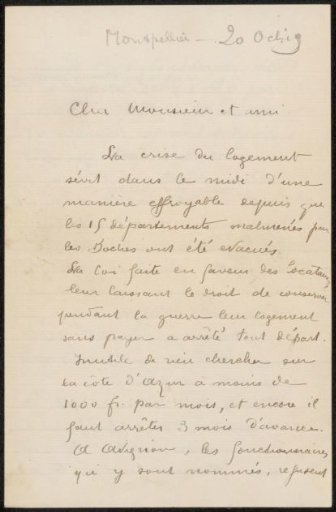 Montpellier - 20 Oct. 19
Cher Monsieur et ami
La crise du logement
sévit dans le midi d'une
manière effroyable depuis que
les 15 départements malmenés par
les Boches ont été évacués.
La loi faite en faveur des locataires
leur laissant le droit de conserver
pendant la guerre leur logement
sans payer a arrêté tout départ.
Inutile de rien chercher sur
la côte d'Azur à moins de
1000 fr. par mois, et encore il
faut arrêter 3 mois d'avance.
A Avignon, les fonctionnaires
qui y sont nommés, refusent